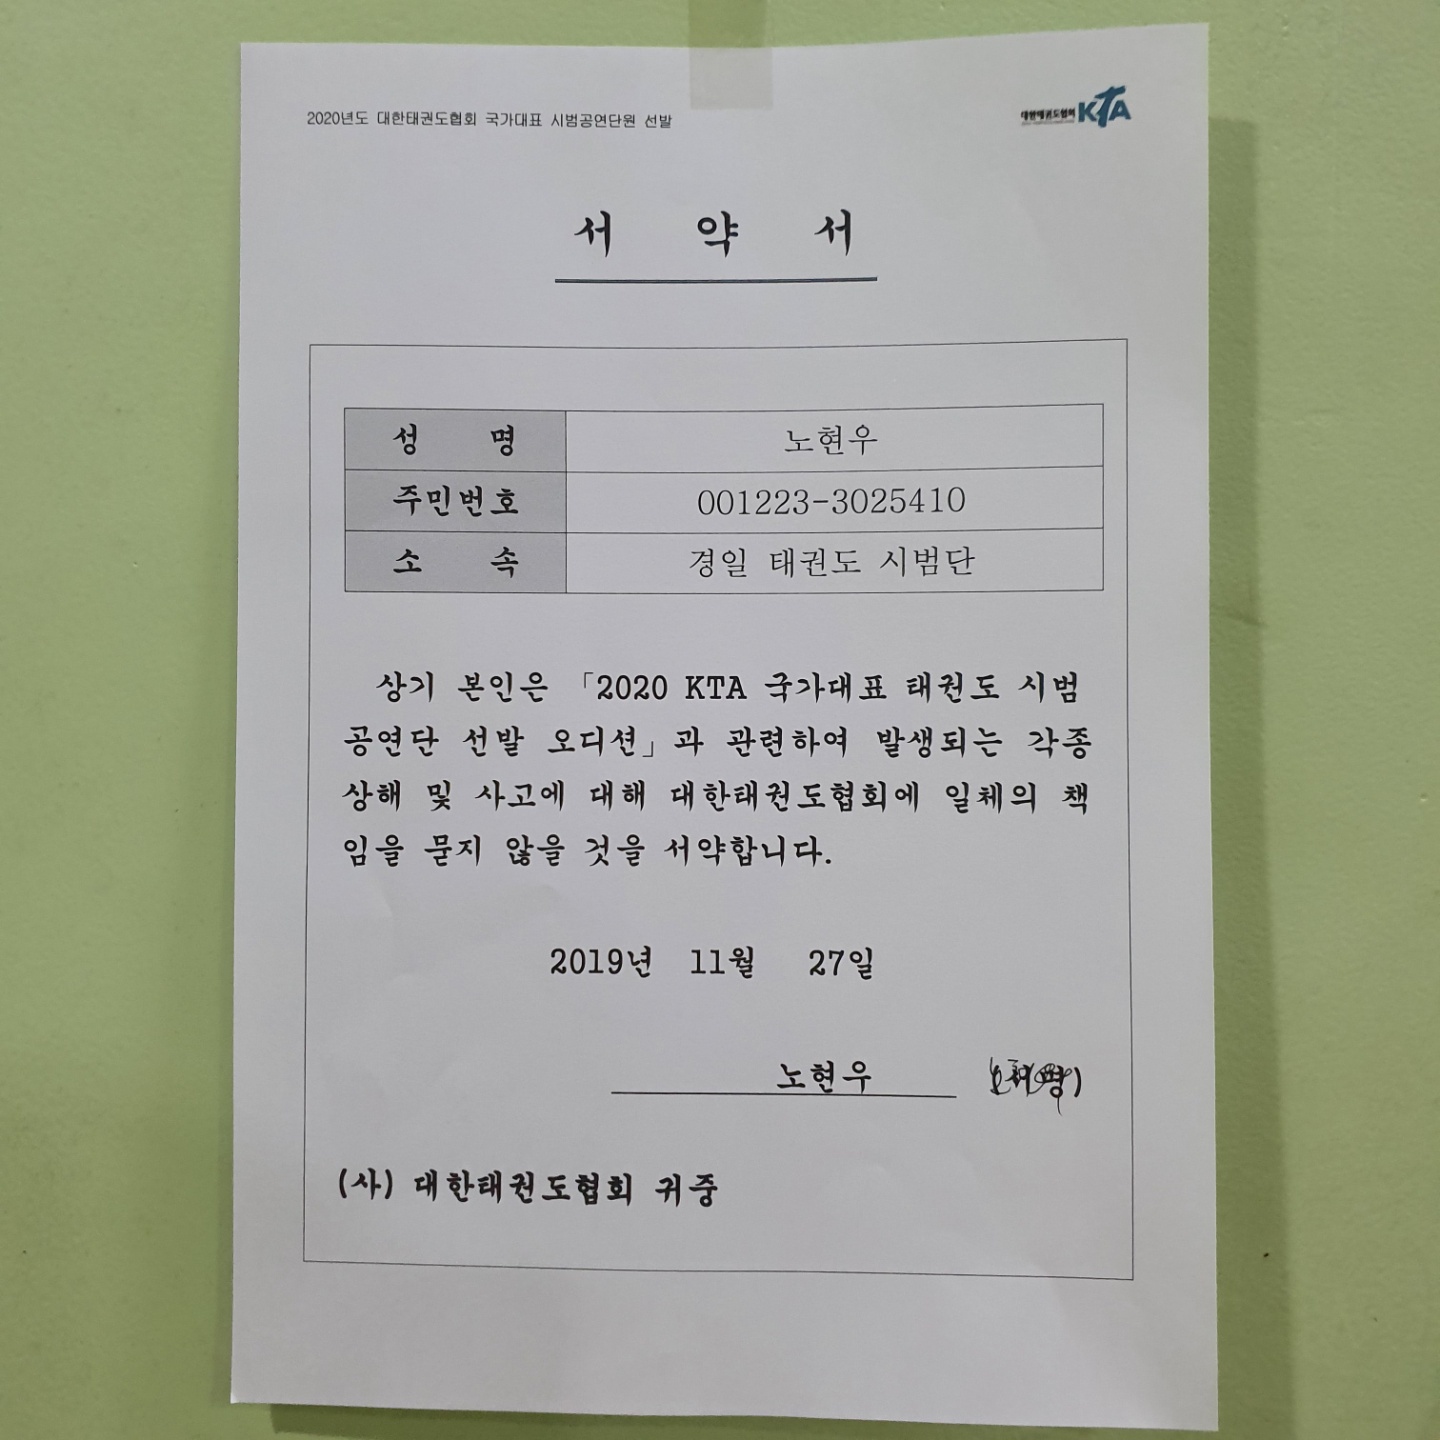 2020년도 대한태권도협회 국가대표 시범공연단원 선발
대한태권도협회 KTA
서 약 서
성 명 노현우
주민번호 001223-3025410
소 속 경일 태권도 시범단
상기 본인은 「2020 KTA 국가대표 태권도 시범
공연단 선발 오디션」과 관련하여 발생되는 각종
상해 및 사고에 대해 대한태권도협회에 일체의 책
임을 묻지 않을 것을 서약합니다.
2019년 11월 27일
노현우
(사) 대한태권도협회 귀중